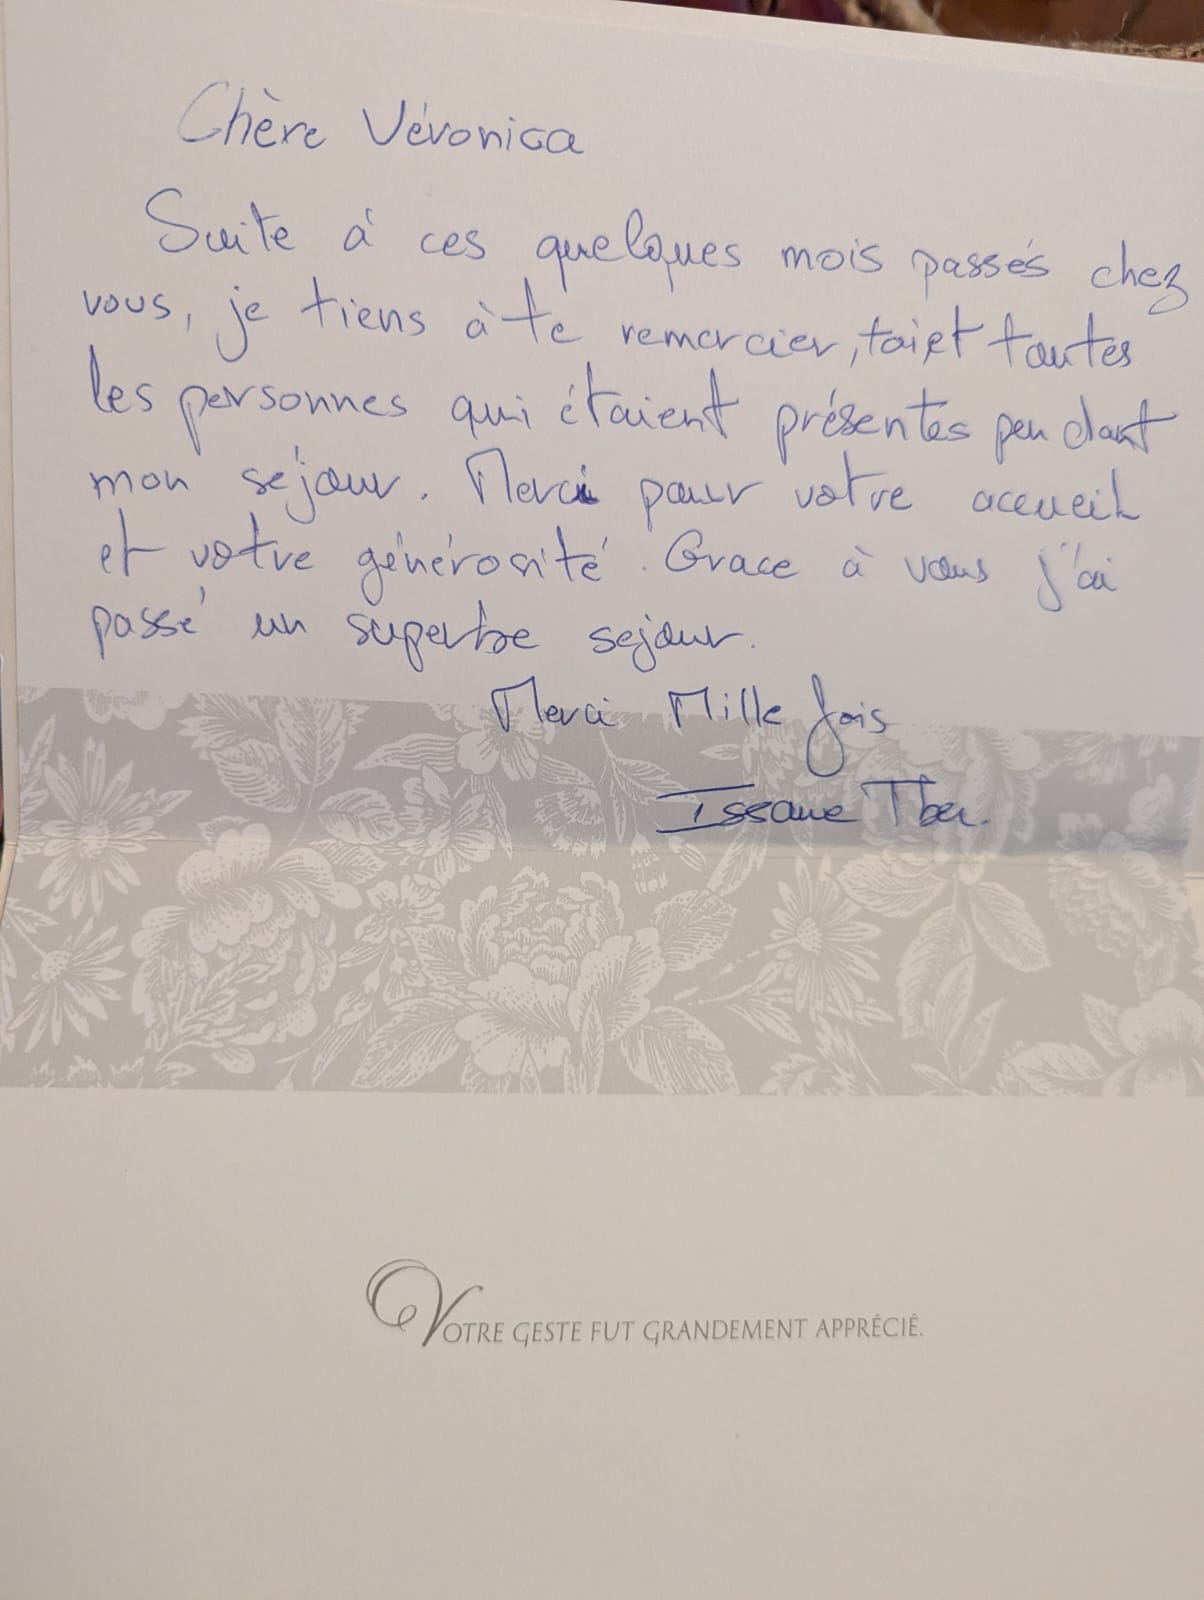 Chère Véronica
Suite à ces quelques mois passés chez
vous, je tiens à te remercier, toi et toutes
les personnes qui étaient présentes pendant
mon séjour. Merci pour votre accueil
et votre générosité. Grace à vous j'ai
passé un superbe sejour.
Merci Mille fois
VOTRE GESTE FUT GRANDEMENT APPRÉCIÉ.